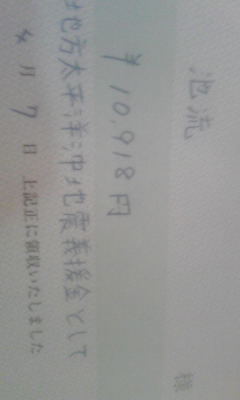 池流 様
¥10,918円
地方太平洋沖地震義援金として
4月7日 上記正に領収いたしました